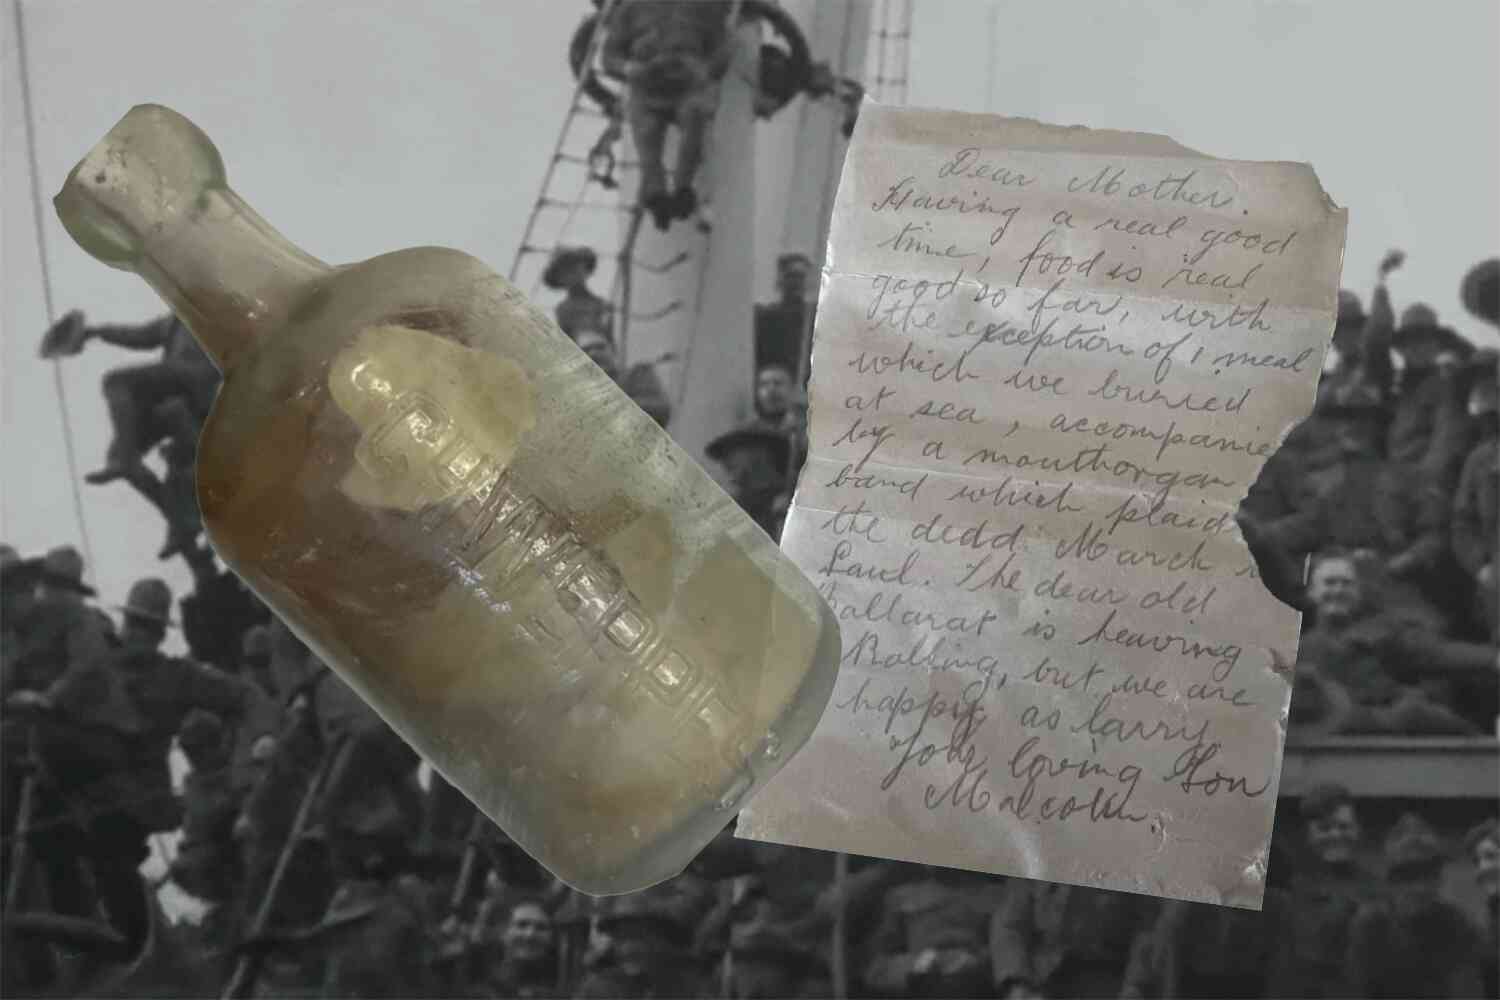 Dear Mother.
Having a real good
time, food is real
good so far, with
the exception of 1 meal
which we buried
at sea, accompanie
by a mouthorgan
band which plaid
the dedd March
Saul. The dear old
allarat is heaving
Rolling, but we are
happy as larry.
Your loving Son
Malcolm.